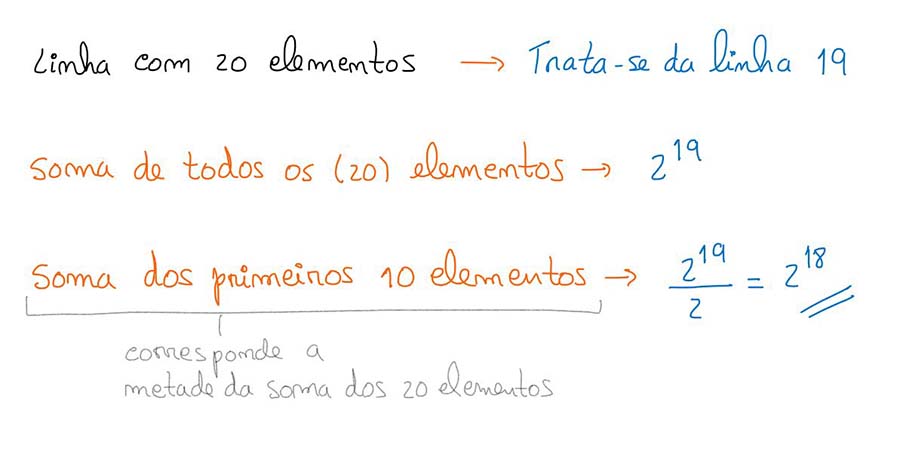 Linha com 20 elementos → Trata-se da linha 19
Soma de todos os (20) elementos → 2^19
Soma dos primeiros 10 elementos → 2^19/2 = 2^18
corresponde a
metade da soma dos 20 elementos